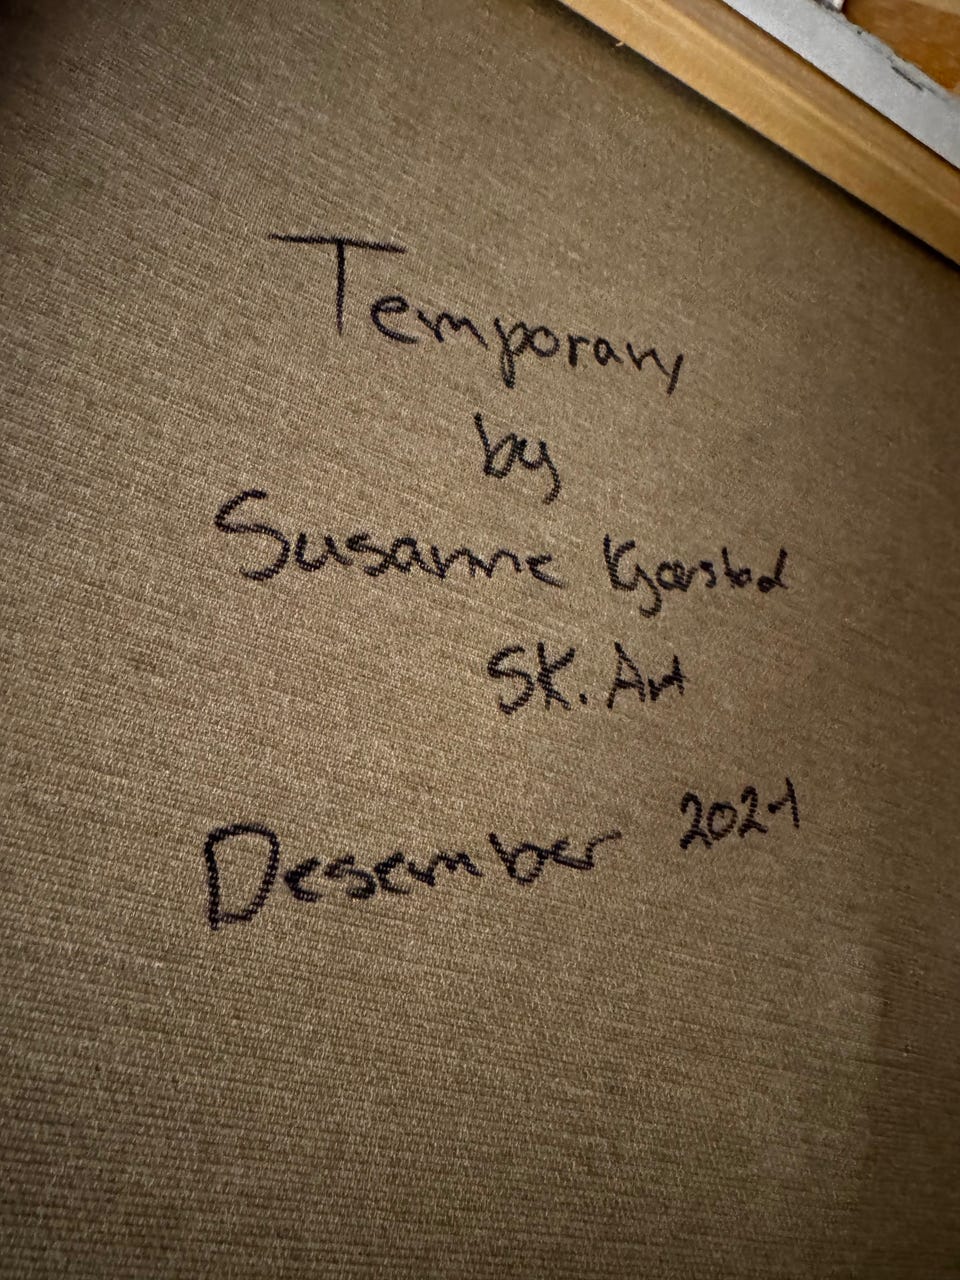 Temporary
by
Susanne Kjærstad
SK. Art
Desember 2021